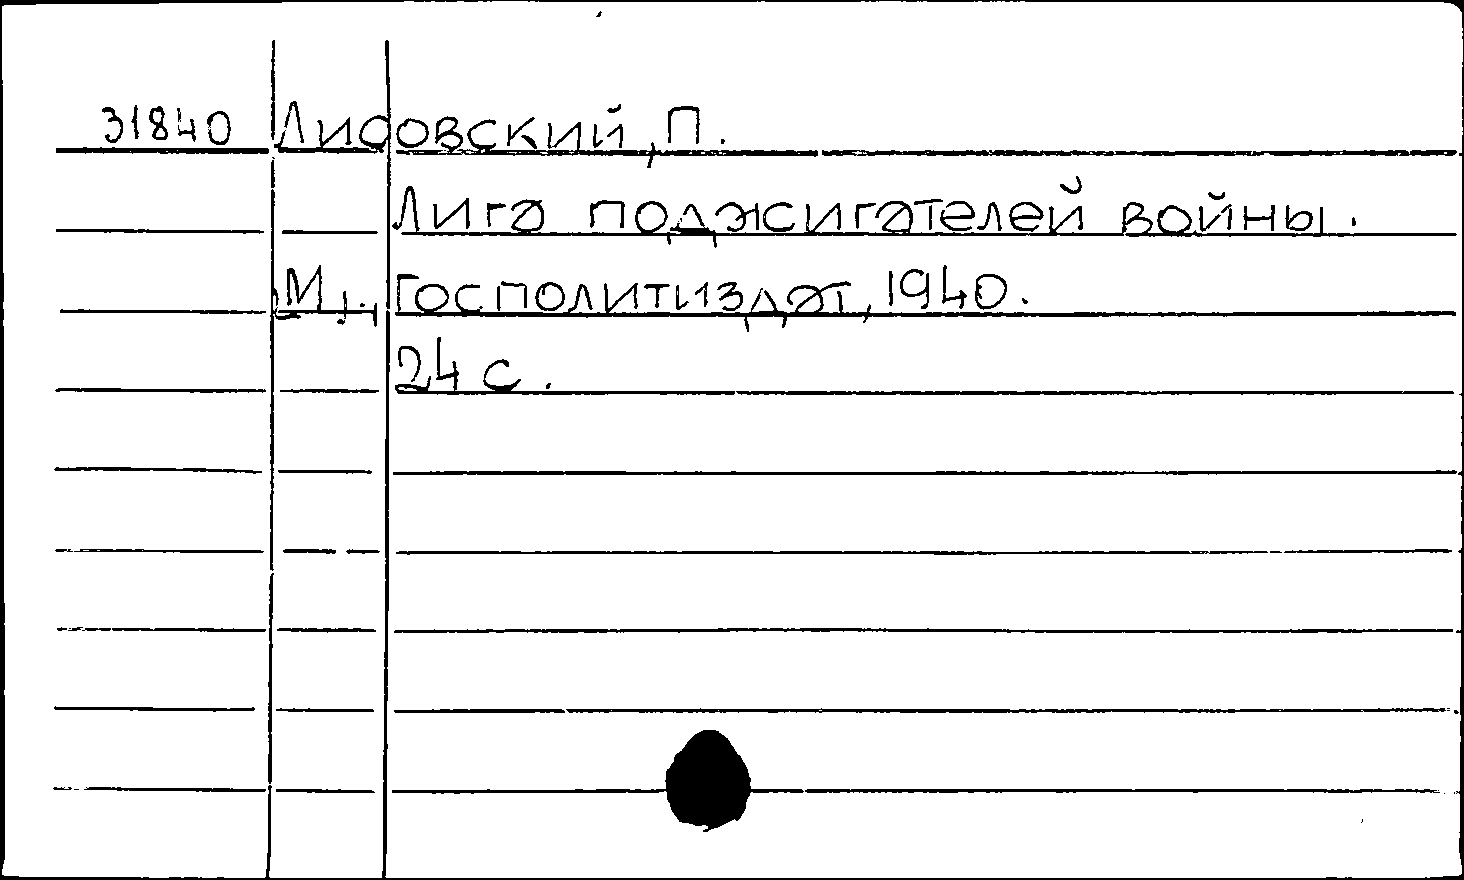 31840 Лисовский, П.
Лига поджигателей войны.
М., Госполитиздат, 1940.
24 с.